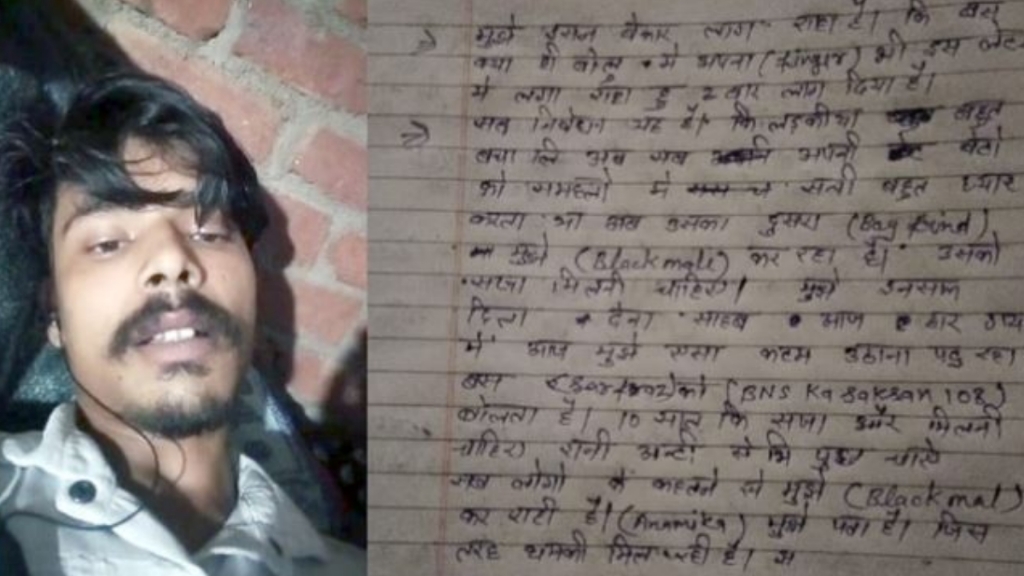 मुझे इतना बेकार लाग राहा है। कि बस
क्या ही बोलु मे अपना (finger) भी इस लेटर
मे लगा राहा हु 2 बार लाग दिया है।
सब निवेदन यह है। कि लड़कीया बहुत
बचा लि अब सब अपनी बेटो
को समहलो मे सली बहुत प्यार
करता था अब उसका दुसरा (Boy friend)
मुझे (Blackmale) कर रहा है। उसको
सजा मिलनी चाहिए। मुझे इनसाफ
दिला देना साहब आज हार गय
मे आज मुझे एसा कदम उठाना पड़ रहा
बस को (BNS Ka saksan 108)
बोलता है। 10 साल कि सजा और मिलनी
चाहिए रानी अन्टी से भि पुछा चाहे
सब लोगो के कहने से मुझे (Blackmal)
कर राही है। (Anamika) मुझे पता है। जिस
तरह धमकी मिल रही है।